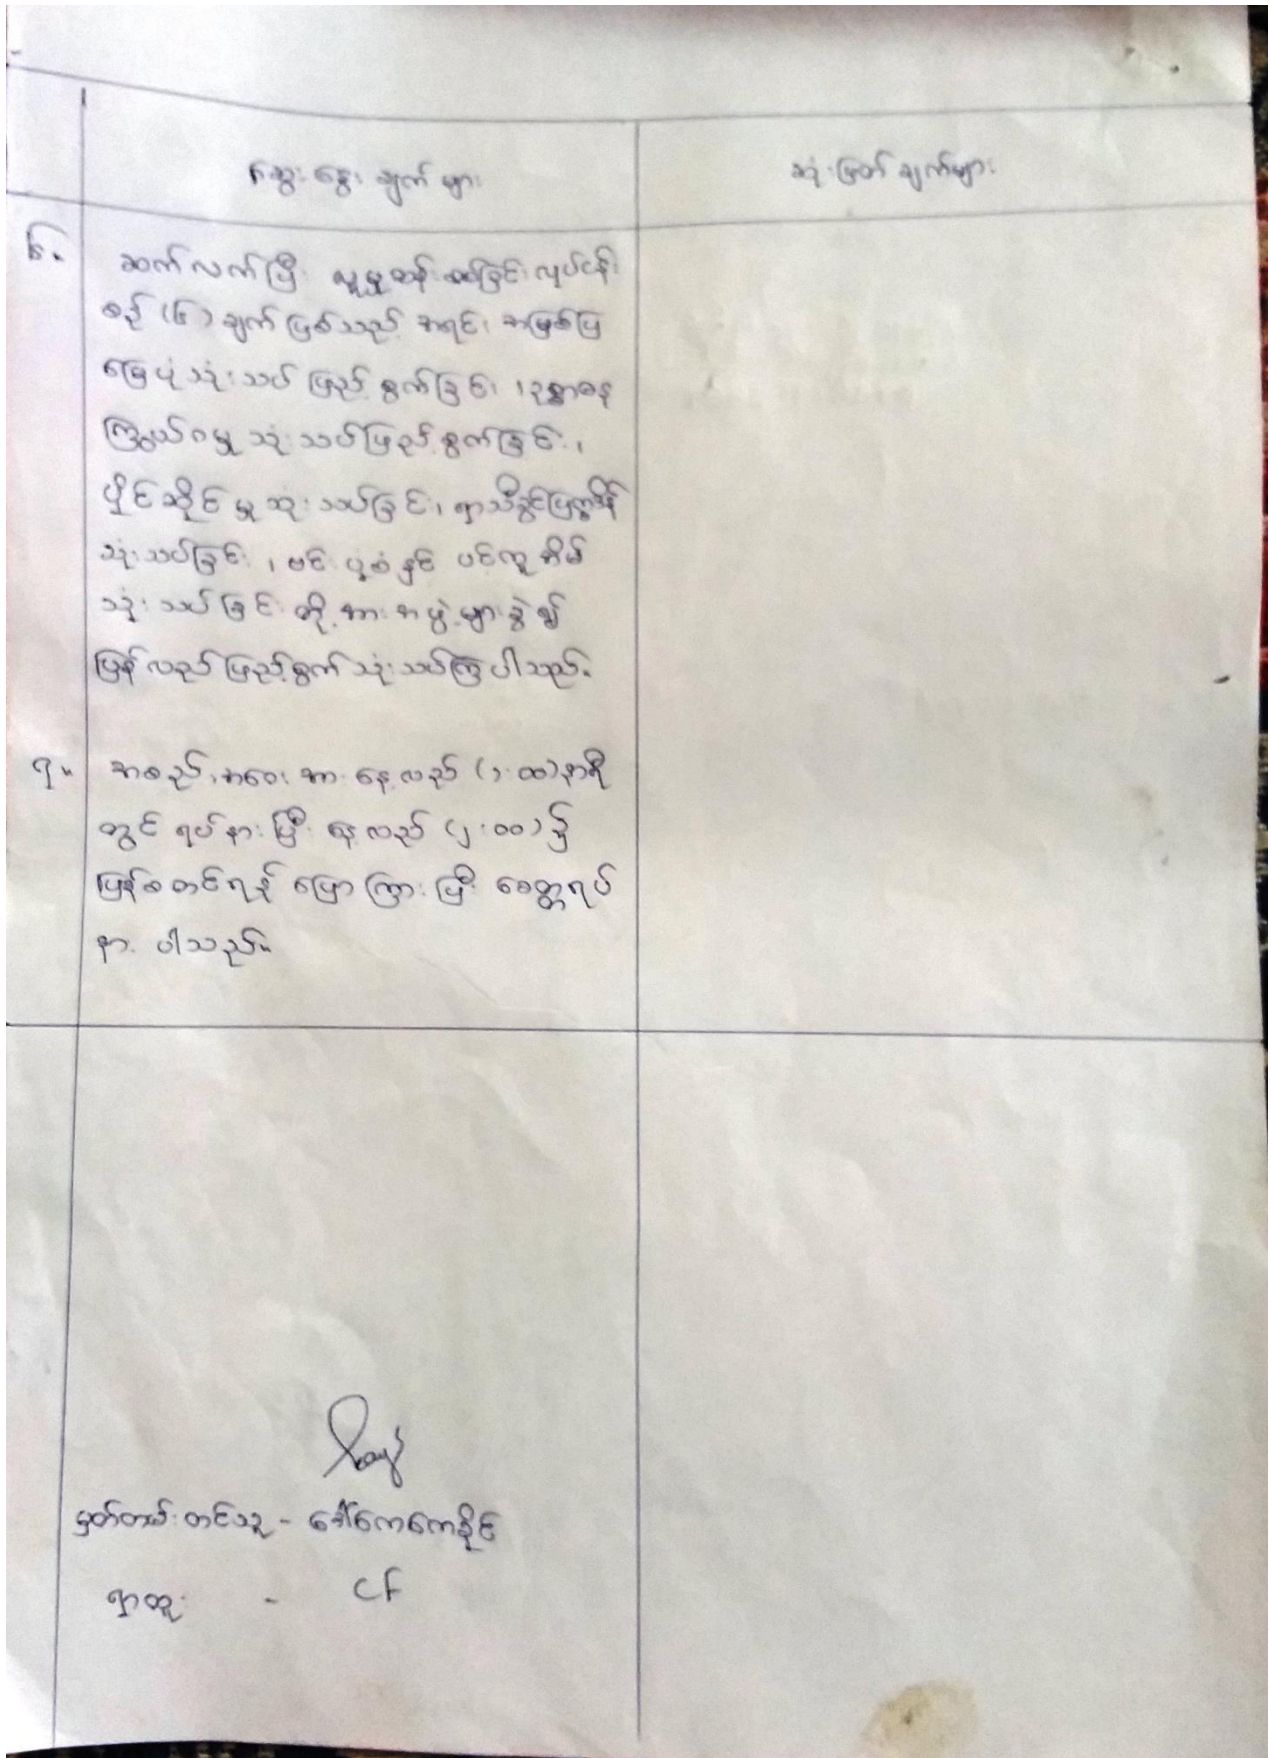 ဆွေးနွေးချက်များ
ဆုံးဖြတ်ချက်များ
၆။
ဆက်လက်ပြီး လူမှုဆန်းစစ်ခြင်းလုပ်ငန်း
စဉ် (၆) ချက်ဖြစ်သည့် အရင်းအမြစ်ပြ
မြေပုံသုံးသပ်ဖြည့်စွက်ခြင်း၊ ဥစ္စာဓန
ကြွယ်ဝမှုသုံးသပ်ဖြည့်စွက်ခြင်း၊
ပိုင်ဆိုင်မှုသုံးသပ်ခြင်း၊ ရာသီခွင်ပြက္ခဒိန်
သုံးသပ်ခြင်း၊ ဗင်းပုံစံနှင့် ပင့်ကူအိမ်
သုံးသပ်ခြင်း တို့အား အဖွဲ့များခွဲ၍
ပြန်လည်ဖြည့်စွက်သုံးသပ်ကြပါသည်။
၇။
အစည်းအဝေးအား နေ့လည် (၁:၀၀) နာရီ
တွင် ရပ်နားပြီး နေ့လည် (၂:၀၀) ၌
ပြန်စတင်ရန် ပြောကြားပြီး ခေတ္တရပ်
နားပါသည်။
မှတ်တမ်းတင်သူ - ဒေါ်ကေကေခိုင်
ရာထူး - CF